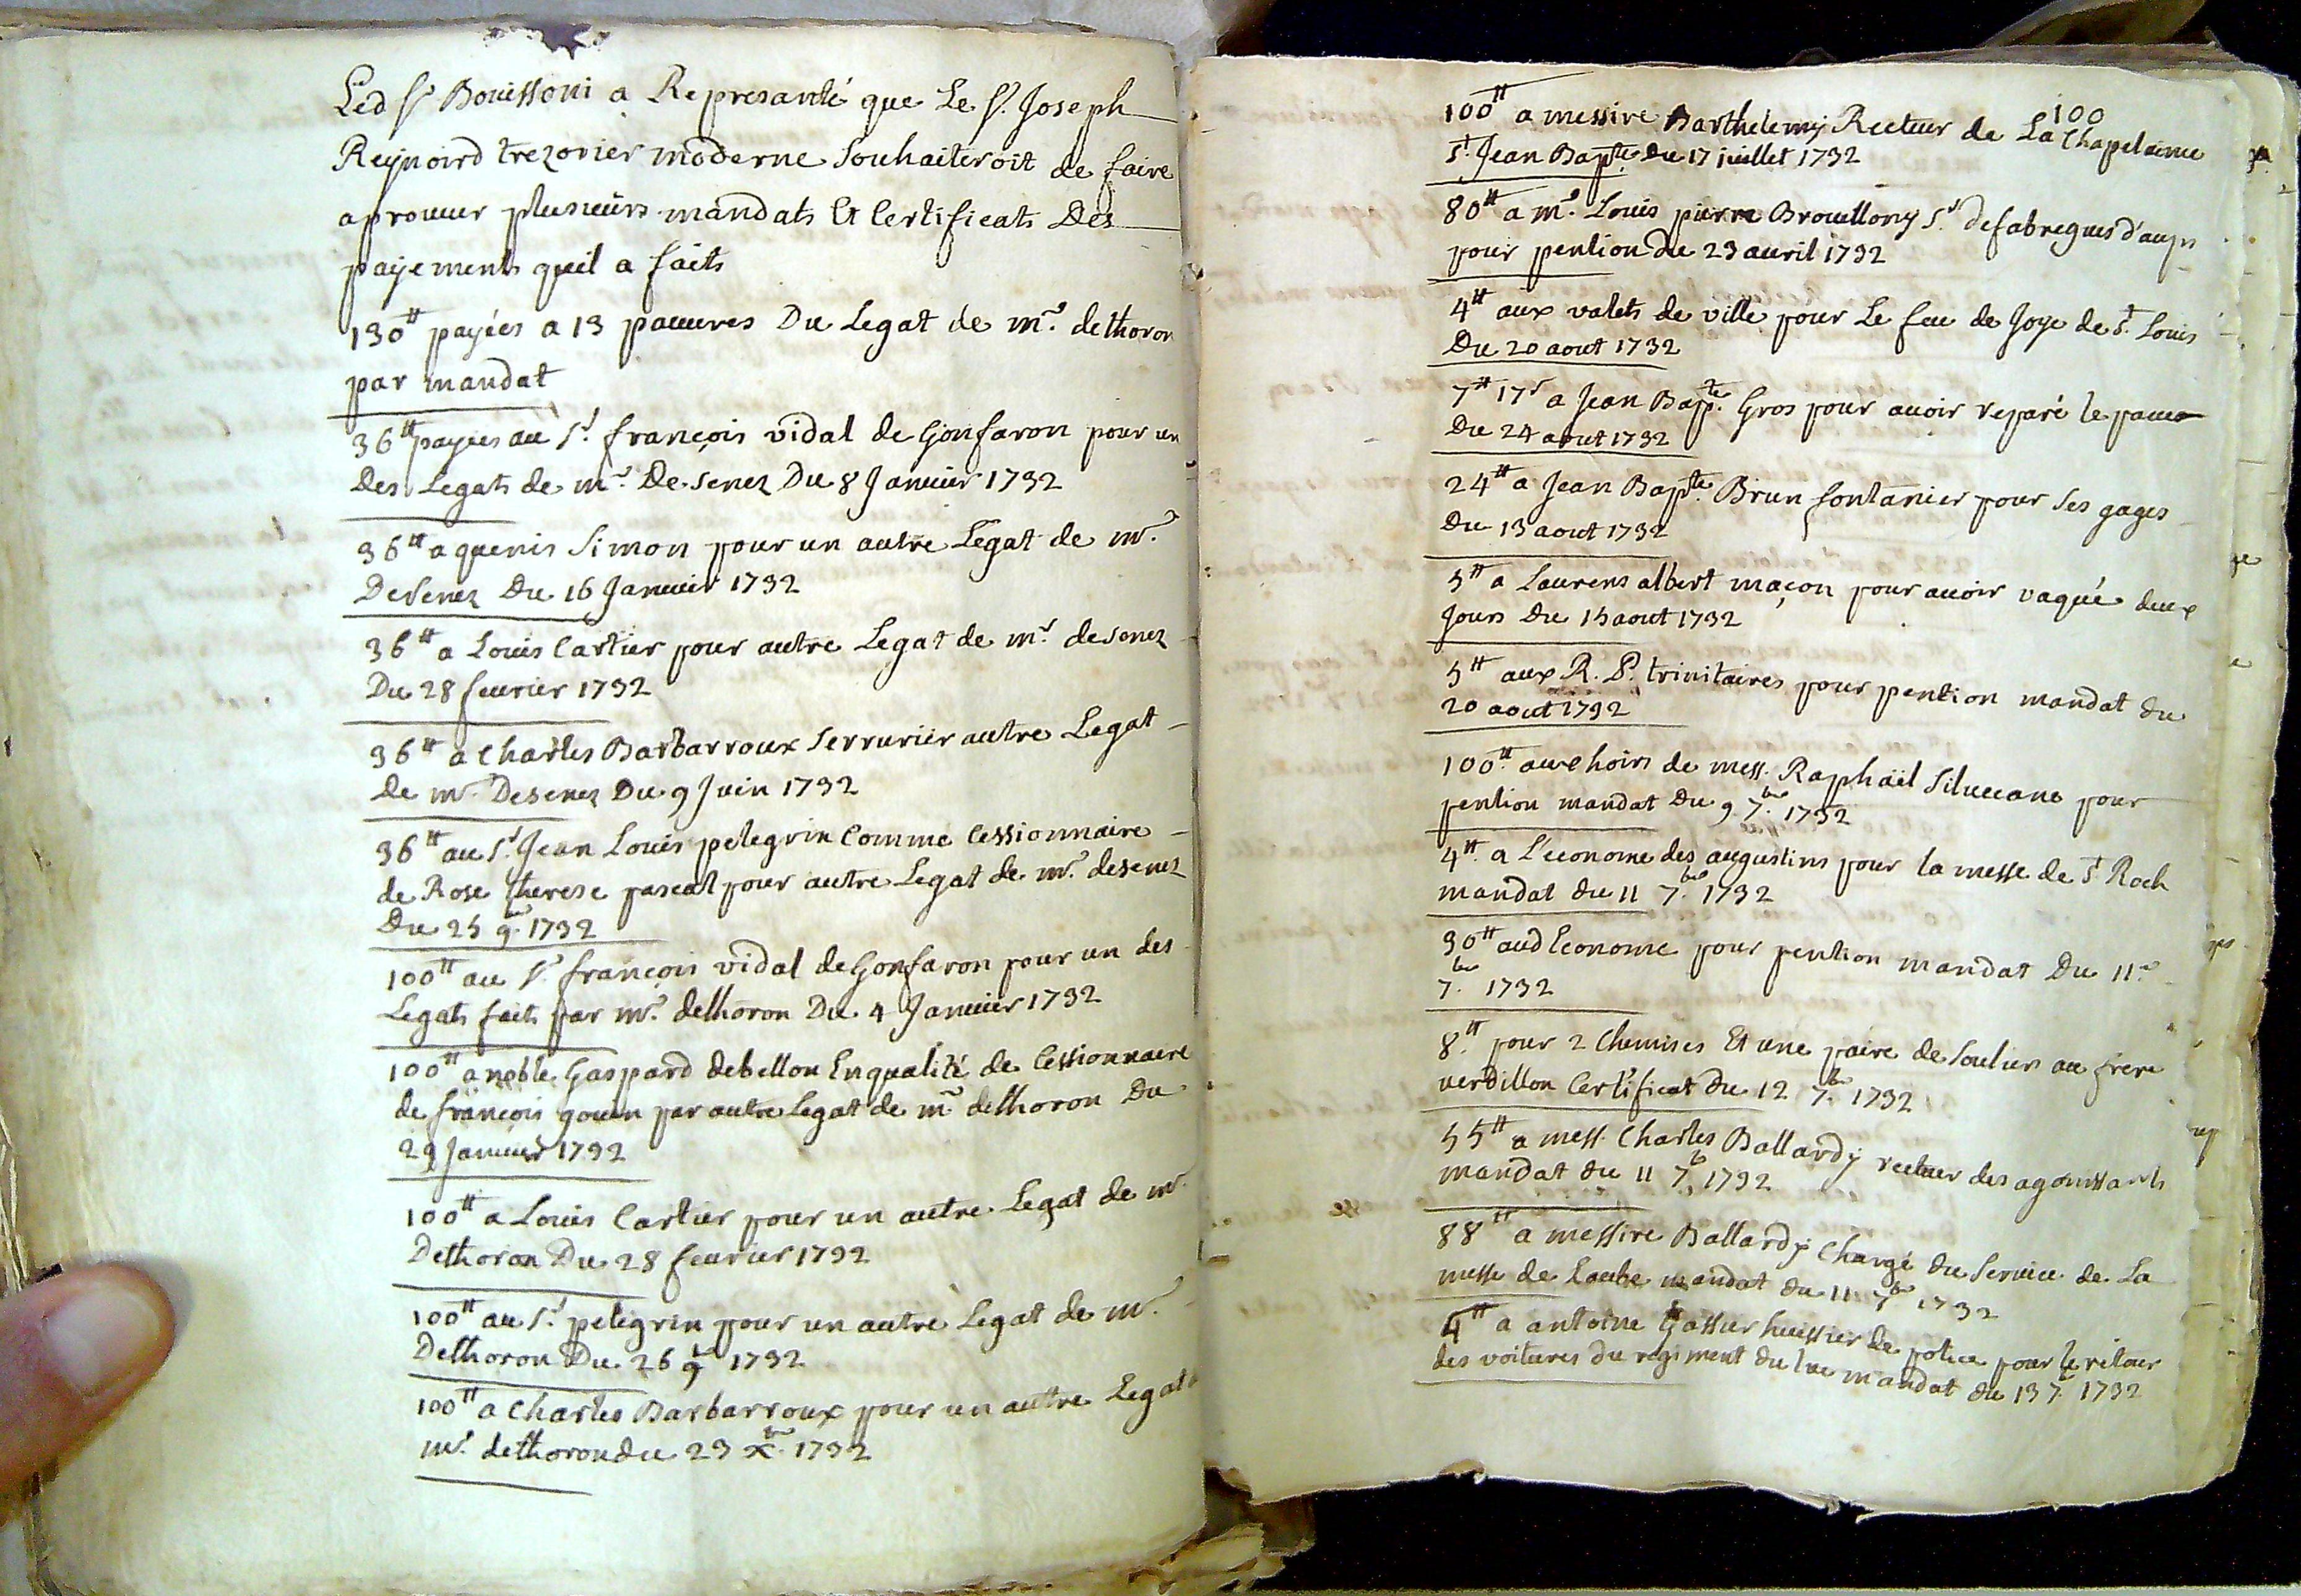 Led Sr Bouissoni a Represanté que Le Sr. Joseph
Reynoird trezorier moderne Souhaiteroit de faire
aprouuer plusieurs mandats Et Certificats Des
payements quil a faits
130tt payées a 13 pauures Du Legat de mr. dethoron
par mandat
36tt payées au Sr. françois vidal de Gonfaron pour un
Des Legats de mr. De Senez Du 8 Januier 1732
36tt a quenis Simon pour un autre Legat de mr.
DeSenez Du 16 Januier 1732
36tt a Louis Cartier pour autre Legat de mr. desenez
Du 28 feurier 1732
36tt a Charles Barbarroux Serrurier autre Legat
de mr. Desenez Du 9 Juin 1732
36tt au Sr. Jean Louis pelegrin Comme Cessionnaire
de Rose therese pascal pour autre Legat de mr. desenez
Du 25 9bre. 1732
100tt au Sr. françois vidal de Gonfaron pour un des
Legats faits par mr. dethoron Du 4 Januier 1732
100tt a noble Gaspard debellon Enqualité de Cessionnaire
de françois gouin par autre Legat de mr. dethoron Du
29 Januier 1732
100tt a Louis Cartier pour un autre Legat de mr.
Dethoron Du 28 feurier 1732
100tt au Sr. pelegrin pour un autre Legat de mr.
Dethoron Du 26 9bre 1732
100tt a Charles Barbarroux pour un autre Legat
mr. dethoron du 23 xbre. 1732
100
100tt a messire Barthelemy Recteur de La Chapelainie
St. Jean Bapte. Du 17 juillet 1732
80tt a mr. Louis pierre Brouillony Sr. defabregues d'aups
pour pention Du 23 auril 1732
4tt aux valets de ville pour Le feu de Joye de St. Louis
Du 20 aout 1732
7tt 17s a Jean Bapte. Gros pour auoir reparé le paué
Du 24 aout 1732
24tt a Jean Bapte. Brun fontanier pour Ses gages
Du 13 aout 1732
3tt a Laurens albert maçon pour auoir vaqué deux
Jours Du 15 aout 1732
5tt aux R. P. trinitaires pour pention mandat du
20 aout 1732
100tt. aux hoirs de mess. Raphaël Siluecane pour
pention mandat Du 9 7bre. 1732
4tt. a L'econome des augustins pour la messe de St Roch
mandat du 11 7bre. 1732
30tt aud Econome pour pention mandat Du 11e
7bre. 1732
8tt. pour 2 Chemises Et une paire de Souliers au frere
verdillon Certificat Du 12 7bre. 1732
55tt a mess. Charles Ballardy recteur des agonissants
mandat du 11 7bre 1732
88tt a messire Ballardy Chargé du Seruice de La
messe de Laube mandat du 11 7bre 1732
4tt a antoine Gassier huissier de police pour le retour
des voitures du regiment du luc mandat du 13 7bre 1732